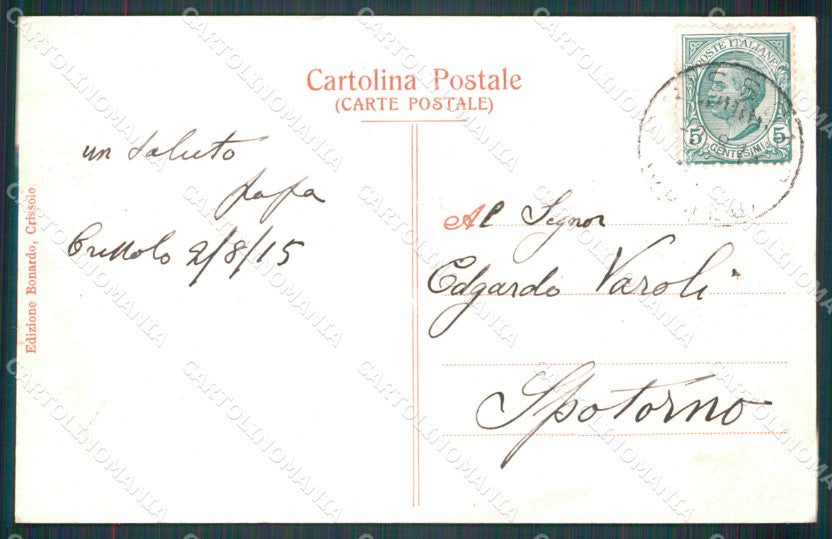 Cartolina Postale
(CARTE POSTALE)
POSTE ITALIANE
5 5
CENTESIMI
un saluto
papa
Crissolo 2/8/15
Al Signor
Edgardo Varoli
Spotorno
Edizione Bonardo, Crissolo
CARTOLINOMANIA